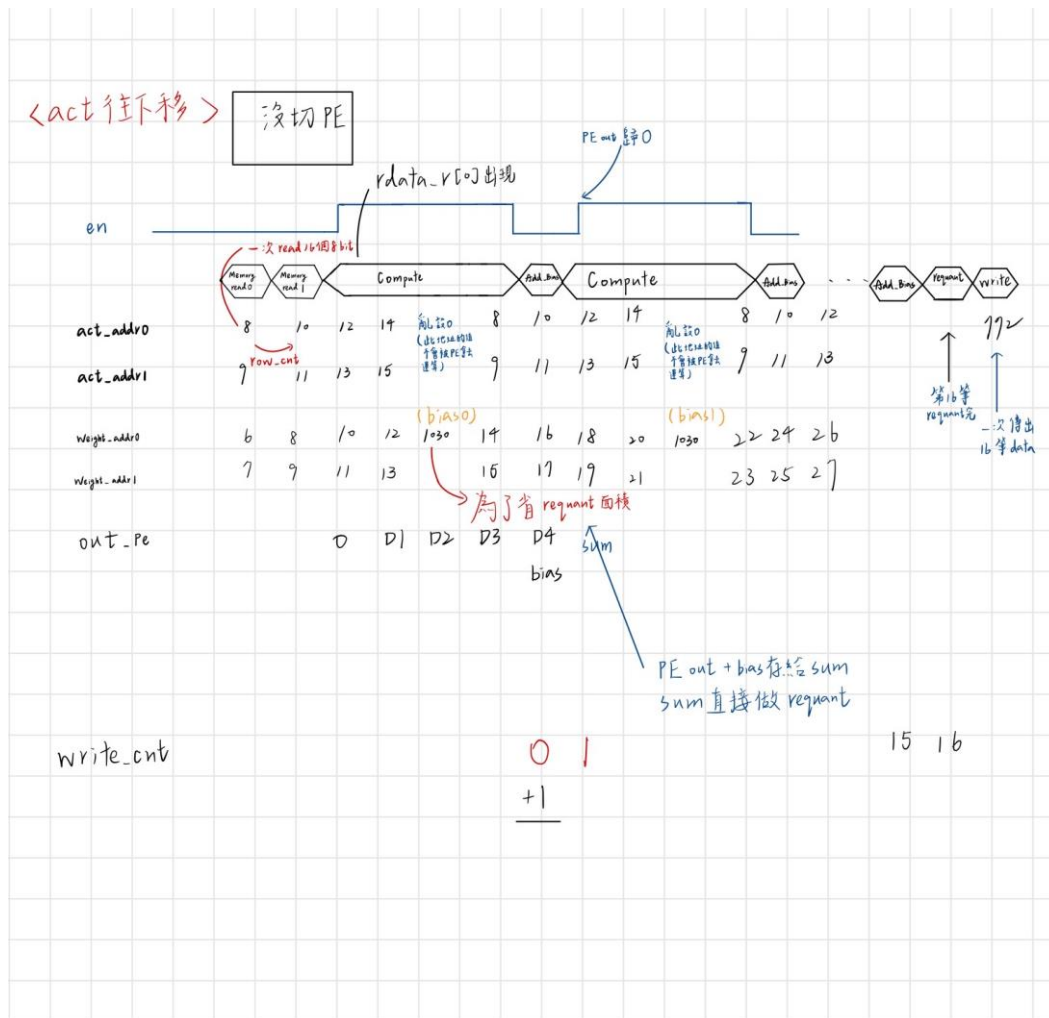 <act 往下移>
沒切 PE
PE out 歸 0
rdata_r[0] 出現
en
一次 read 16個 8 bit
Memory read0
Memory read 1
Compute
Add_Bias
Compute
Add_Bias
. . .
Add_Bias
requant
write
act_addr0 8 10 12 14 亂設0 8 10 12 14 亂設0 8 10 12 772
(此地址的值
不會被PE拿去
運算)
(此地址的值
不會被PE拿去
運算)
row_cnt
act_addr1 9 11 13 15 9 11 13 15 9 11 13
第16筆
requant完
一次傳出
16筆data
(bias0) (bias1)
Weight_addr0 6 8 10 12 1030 14 16 18 20 1030 22 24 26
Weight_addr1 7 9 11 13 15 17 19 21 23 25 27
為了省 requant 面積
out_Pe D D1 D2 D3 D4 sum
bias
PE out + bias 存給 sum
sum 直接做 requant
write_cnt 0 1 15 16
+1